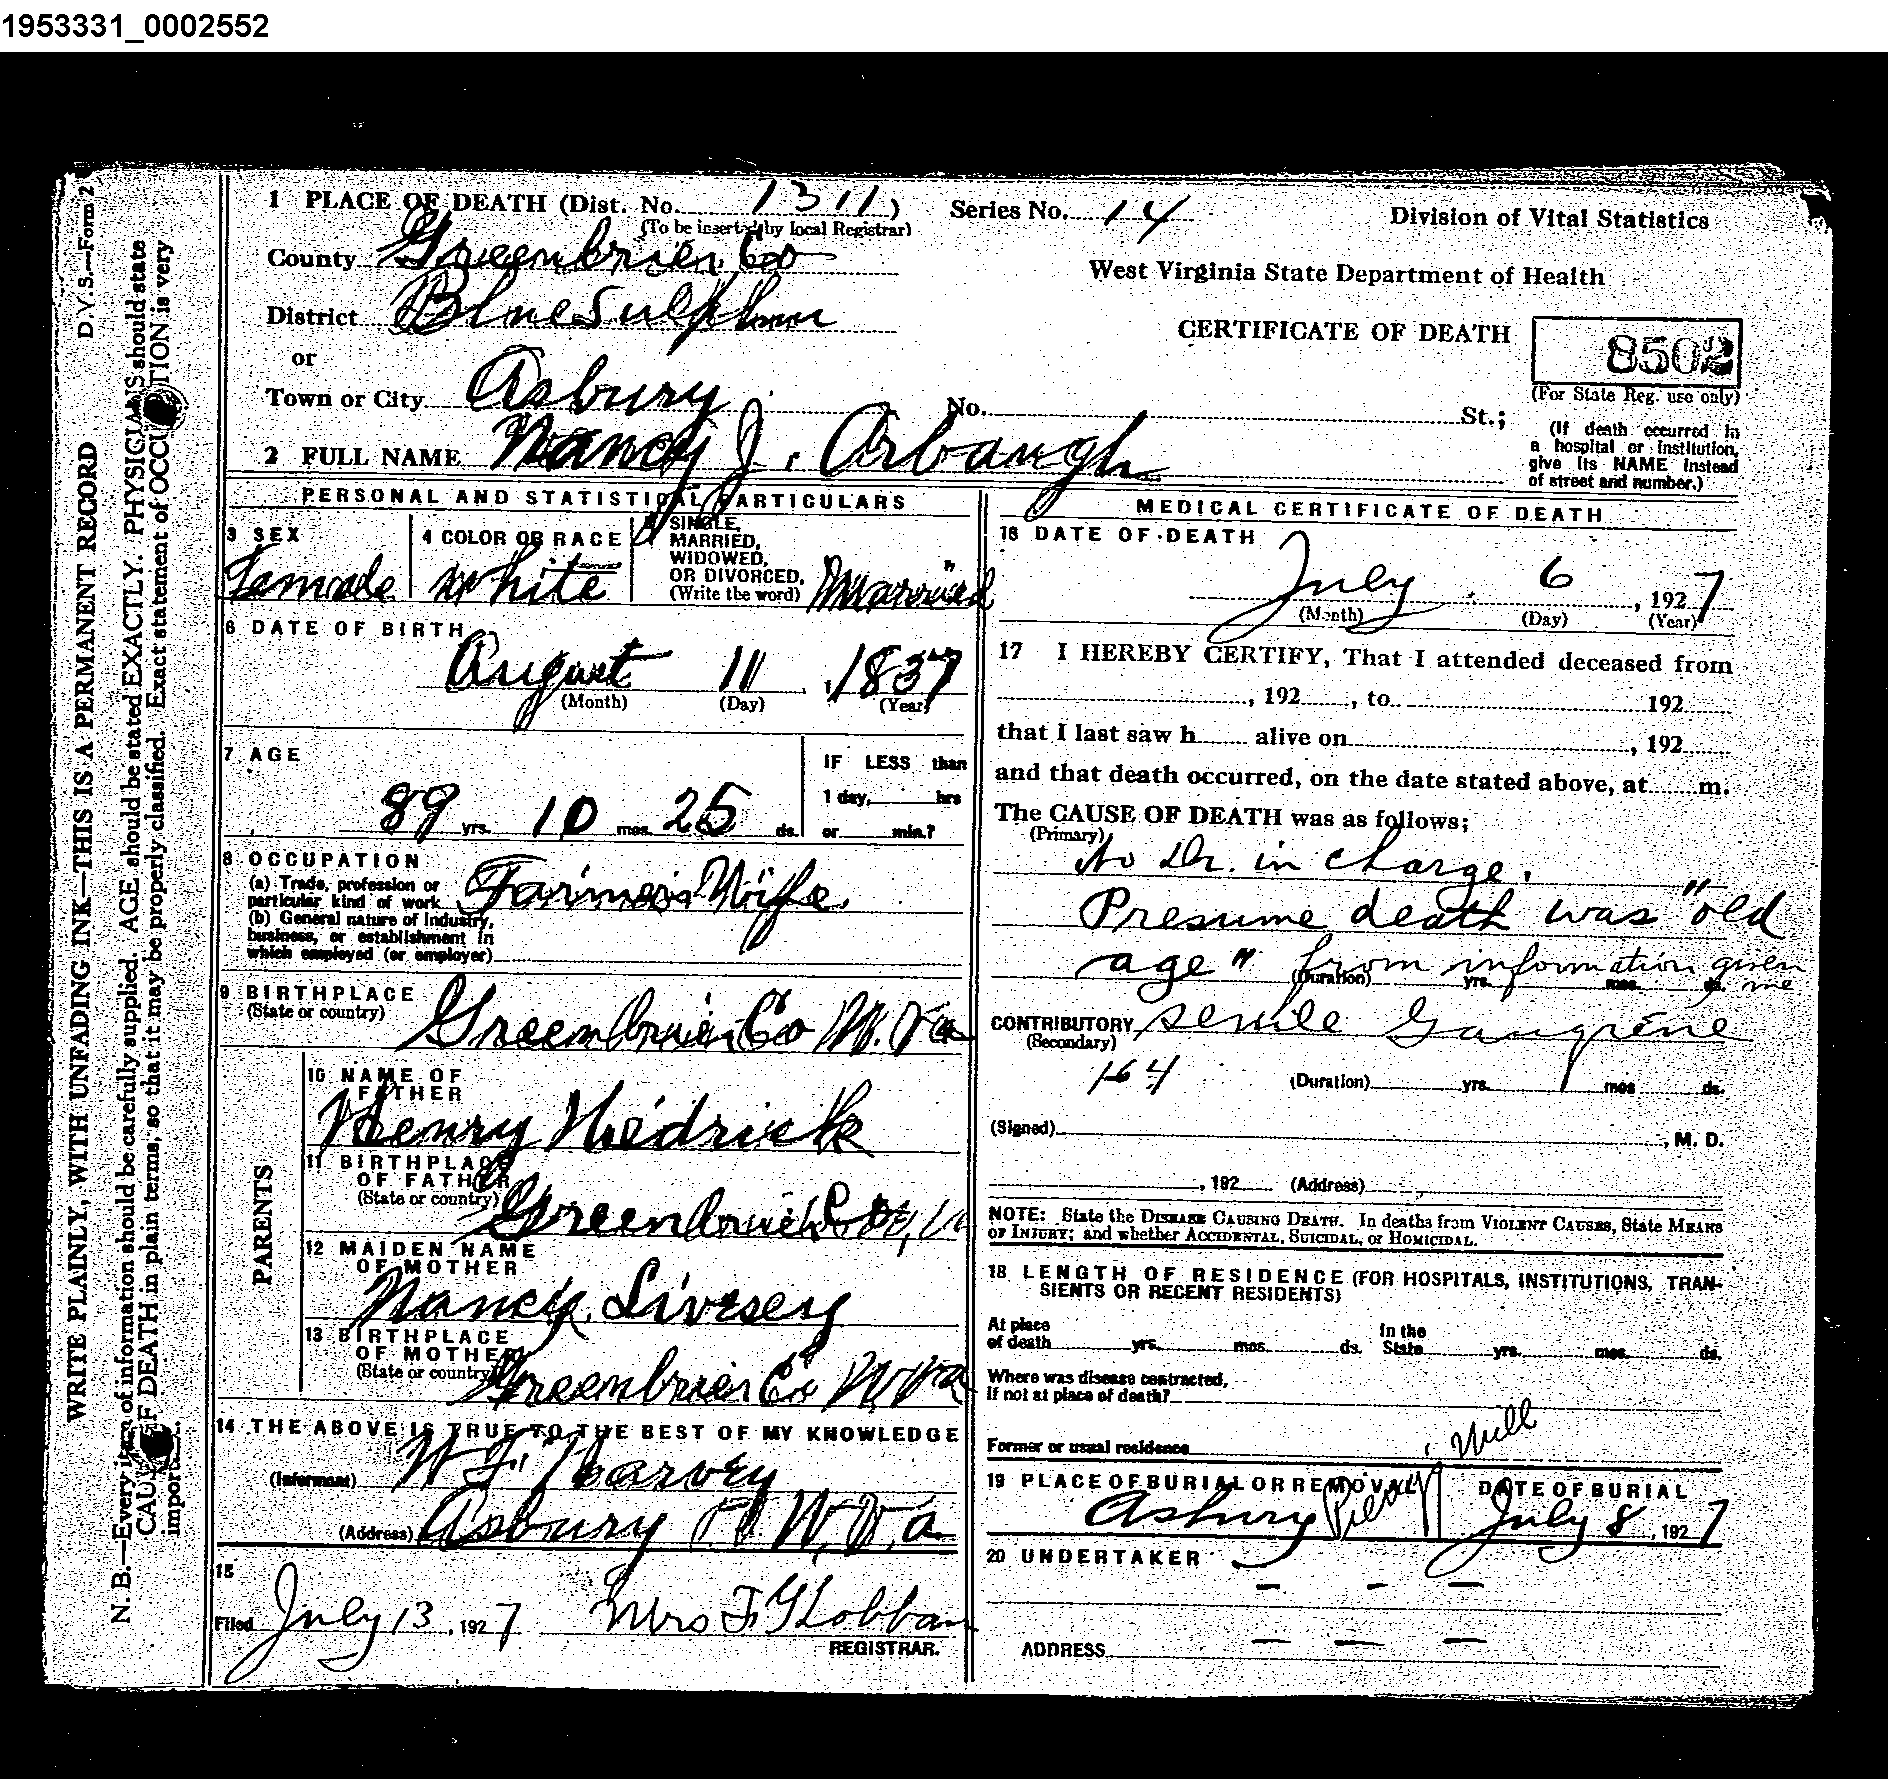 1953331_0002552
1 PLACE OF DEATH (Dist. No. 1311)
(To be inserted by local Registrar)
Series No. 14
Division of Vital Statistics
County Greenbrier Co
West Virginia State Department of Health
District Blue Sulphur
CERTIFICATE OF DEATH
8502
(For State Reg. use only)
or
Town or City Asbury
No. St.;
(If death occurred in
a hospital or institution,
give its NAME instead
of street and number.)
2 FULL NAME Nancy J. Arbaugh
PERSONAL AND STATISTICAL PARTICULARS
3 SEX
Female
4 COLOR OR RACE
White
5 SINGLE,
MARRIED,
WIDOWED,
OR DIVORCED.
(Write the word)
Married
6 DATE OF BIRTH
August 11, 1837
(Month) (Day) (Year)
7 AGE
89 yrs. 10 mos. 25 ds.
IF LESS than
1 day, hrs
or min.?
8 OCCUPATION
(a) Trade, profession or
particular kind of work Farmers Wife
(b) General nature of industry,
business, or establishment in
which employed (or employer)
9 BIRTHPLACE
(State or country) Greenbrier Co W. Va
PARENTS
10 NAME OF
FATHER
Henry Hedrick
11 BIRTHPLACE
OF FATHER
(State or country) Greenbrier Co W, Va
12 MAIDEN NAME
OF MOTHER
Nancy Livesey
13 BIRTHPLACE
OF MOTHER
(State or country) Greenbrier Co W Va
14 THE ABOVE IS TRUE TO THE BEST OF MY KNOWLEDGE
(Informant) W F Harvey
(Address) Asbury W. Va
15
Filed July 13, 1927 Mrs F Lobban
REGISTRAR.
MEDICAL CERTIFICATE OF DEATH
16 DATE OF DEATH
July 6, 1927
(Month) (Day) (Year)
17 I HEREBY CERTIFY, That I attended deceased from
, 192 , to 192
that I last saw h alive on , 192
and that death occurred, on the date stated above, at m.
The CAUSE OF DEATH was as follows;
(Primary)
No Dr. in charge.
Presume death was "old
age" from information given
me
(Duration) yrs. mos. ds.
CONTRIBUTORY senile Gangrene
(Secondary)
164
(Duration) yrs. mos ds.
(Signed) , M. D.
, 192 (Address)
NOTE: State the DISEASE CAUSING DEATH. In deaths from VIOLENT CAUSES, State MEANS
OF INJURY; and whether ACCIDENTAL, SUICIDAL, or HOMICIDAL.
18 LENGTH OF RESIDENCE (FOR HOSPITALS, INSTITUTIONS, TRAN-
SIENTS OR RECENT RESIDENTS)
At place
of death yrs. mos. ds.
In the
State yrs. mos. ds.
Where was disease contracted,
if not at place of death?
Former or usual residence
19 PLACE OF BURIAL OR REMOVAL
Asbury
DATE OF BURIAL
July 8, 1927
20 UNDERTAKER
ADDRESS
D. V. S.—Form 2
WRITE PLAINLY, WITH UNFADING INK—THIS IS A PERMANENT RECORD
N. B.—Every item of information should be carefully supplied. AGE should be stated EXACTLY. PHYSICIANS should state
CAUSE OF DEATH in plain terms, so that it may be properly classified. Exact statement of OCCUPATION is very
important.